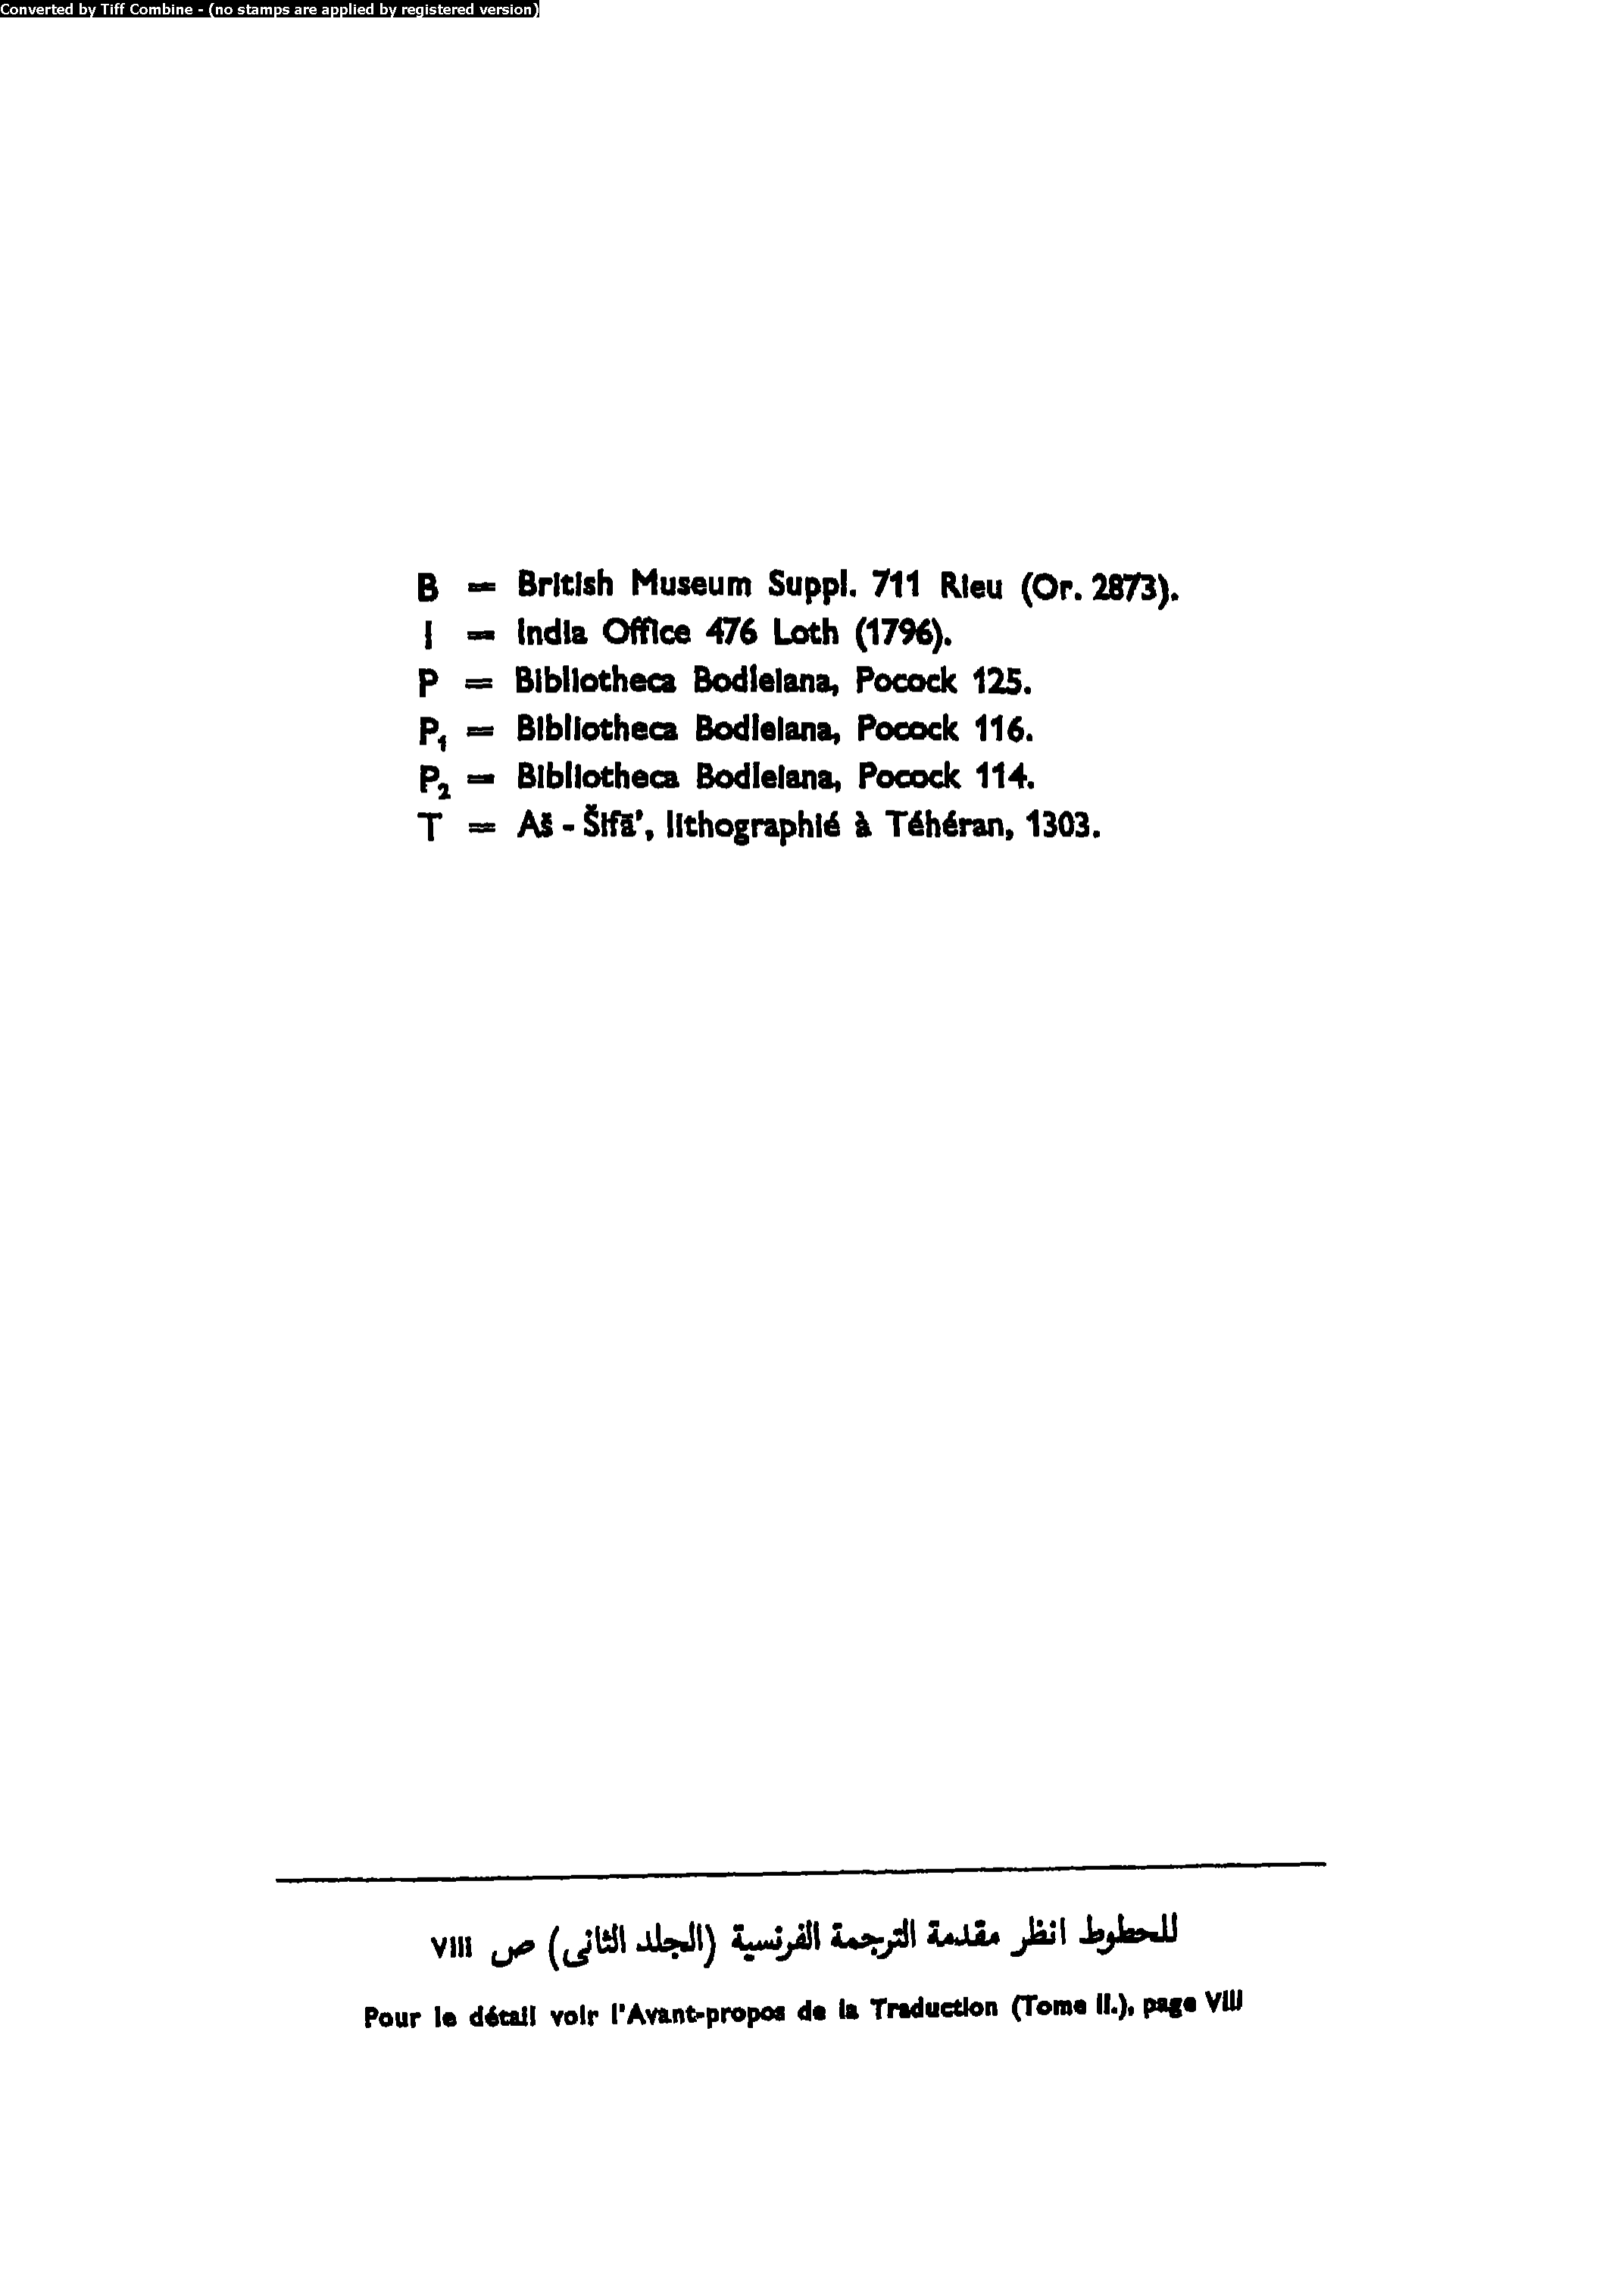 Converted by Tiff Combine - (no stamps are applied by registered version)
B = British Museum Suppl. 711 Rieu (Or. 2873).
I = India Office 476 Loth (1796).
P = Bibliotheca Bodleiana, Pocock 125.
P₁ = Bibliotheca Bodleiana, Pocock 116.
P₂ = Bibliotheca Bodleiana, Pocock 114.
T = Aš - Šifā', lithographié à Téhéran, 1303.
للحطوط انظر مقدمة الترجمة الفرنسية (الجلد الثانى) ص VIII
Pour le détail voir l'Avant-propos de la Traduction (Tome II.), page VIII